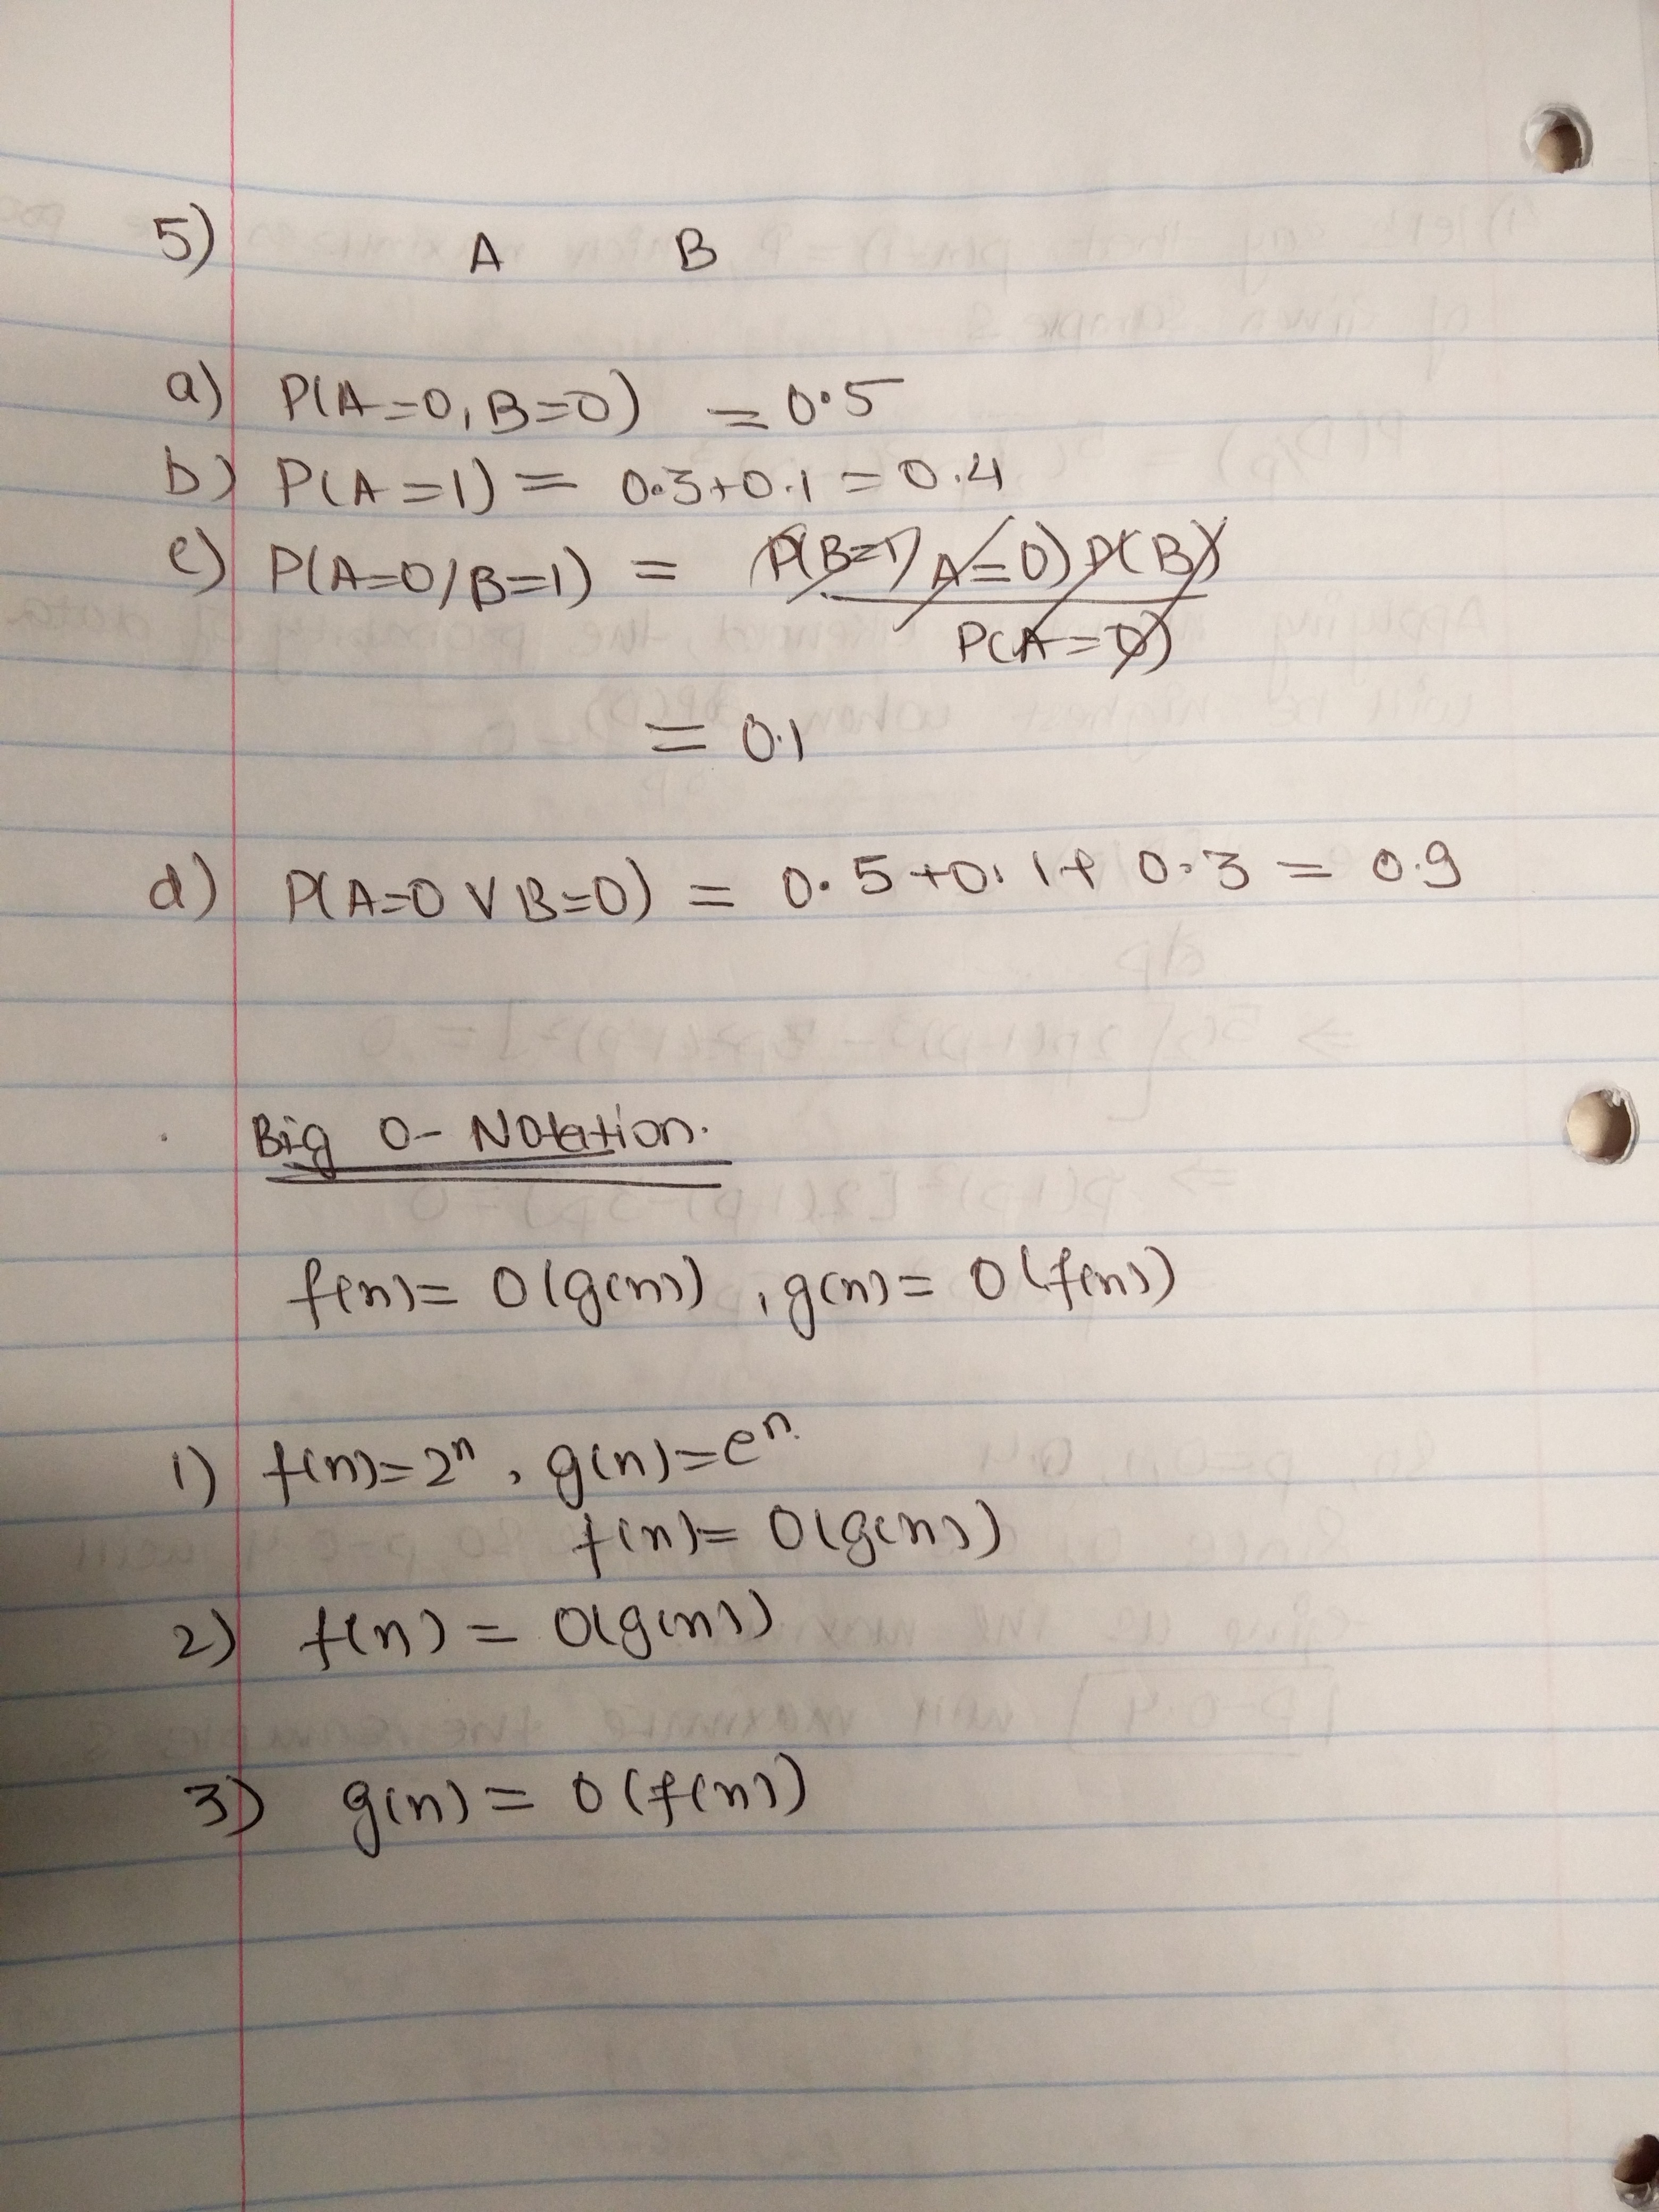 5) A B
a) P(A=0, B=0) = 0.5
b) P(A=1) = 0.3+0.1 = 0.4
c) P(A=0/B=1) = P(B=1, A=0) P(B)
P(A=0)
= 0.1
d) P(A=0 V B=0) = 0.5+0.1+0.3 = 0.9
Big O- Notation.
f(n)= O(g(n)), g(n)= O(f(n))
1) f(n)=2ⁿ, g(n)=eⁿ.
f(n)= O(g(n))
2) f(n) = O(g(n))
3) g(n) = O(f(n))